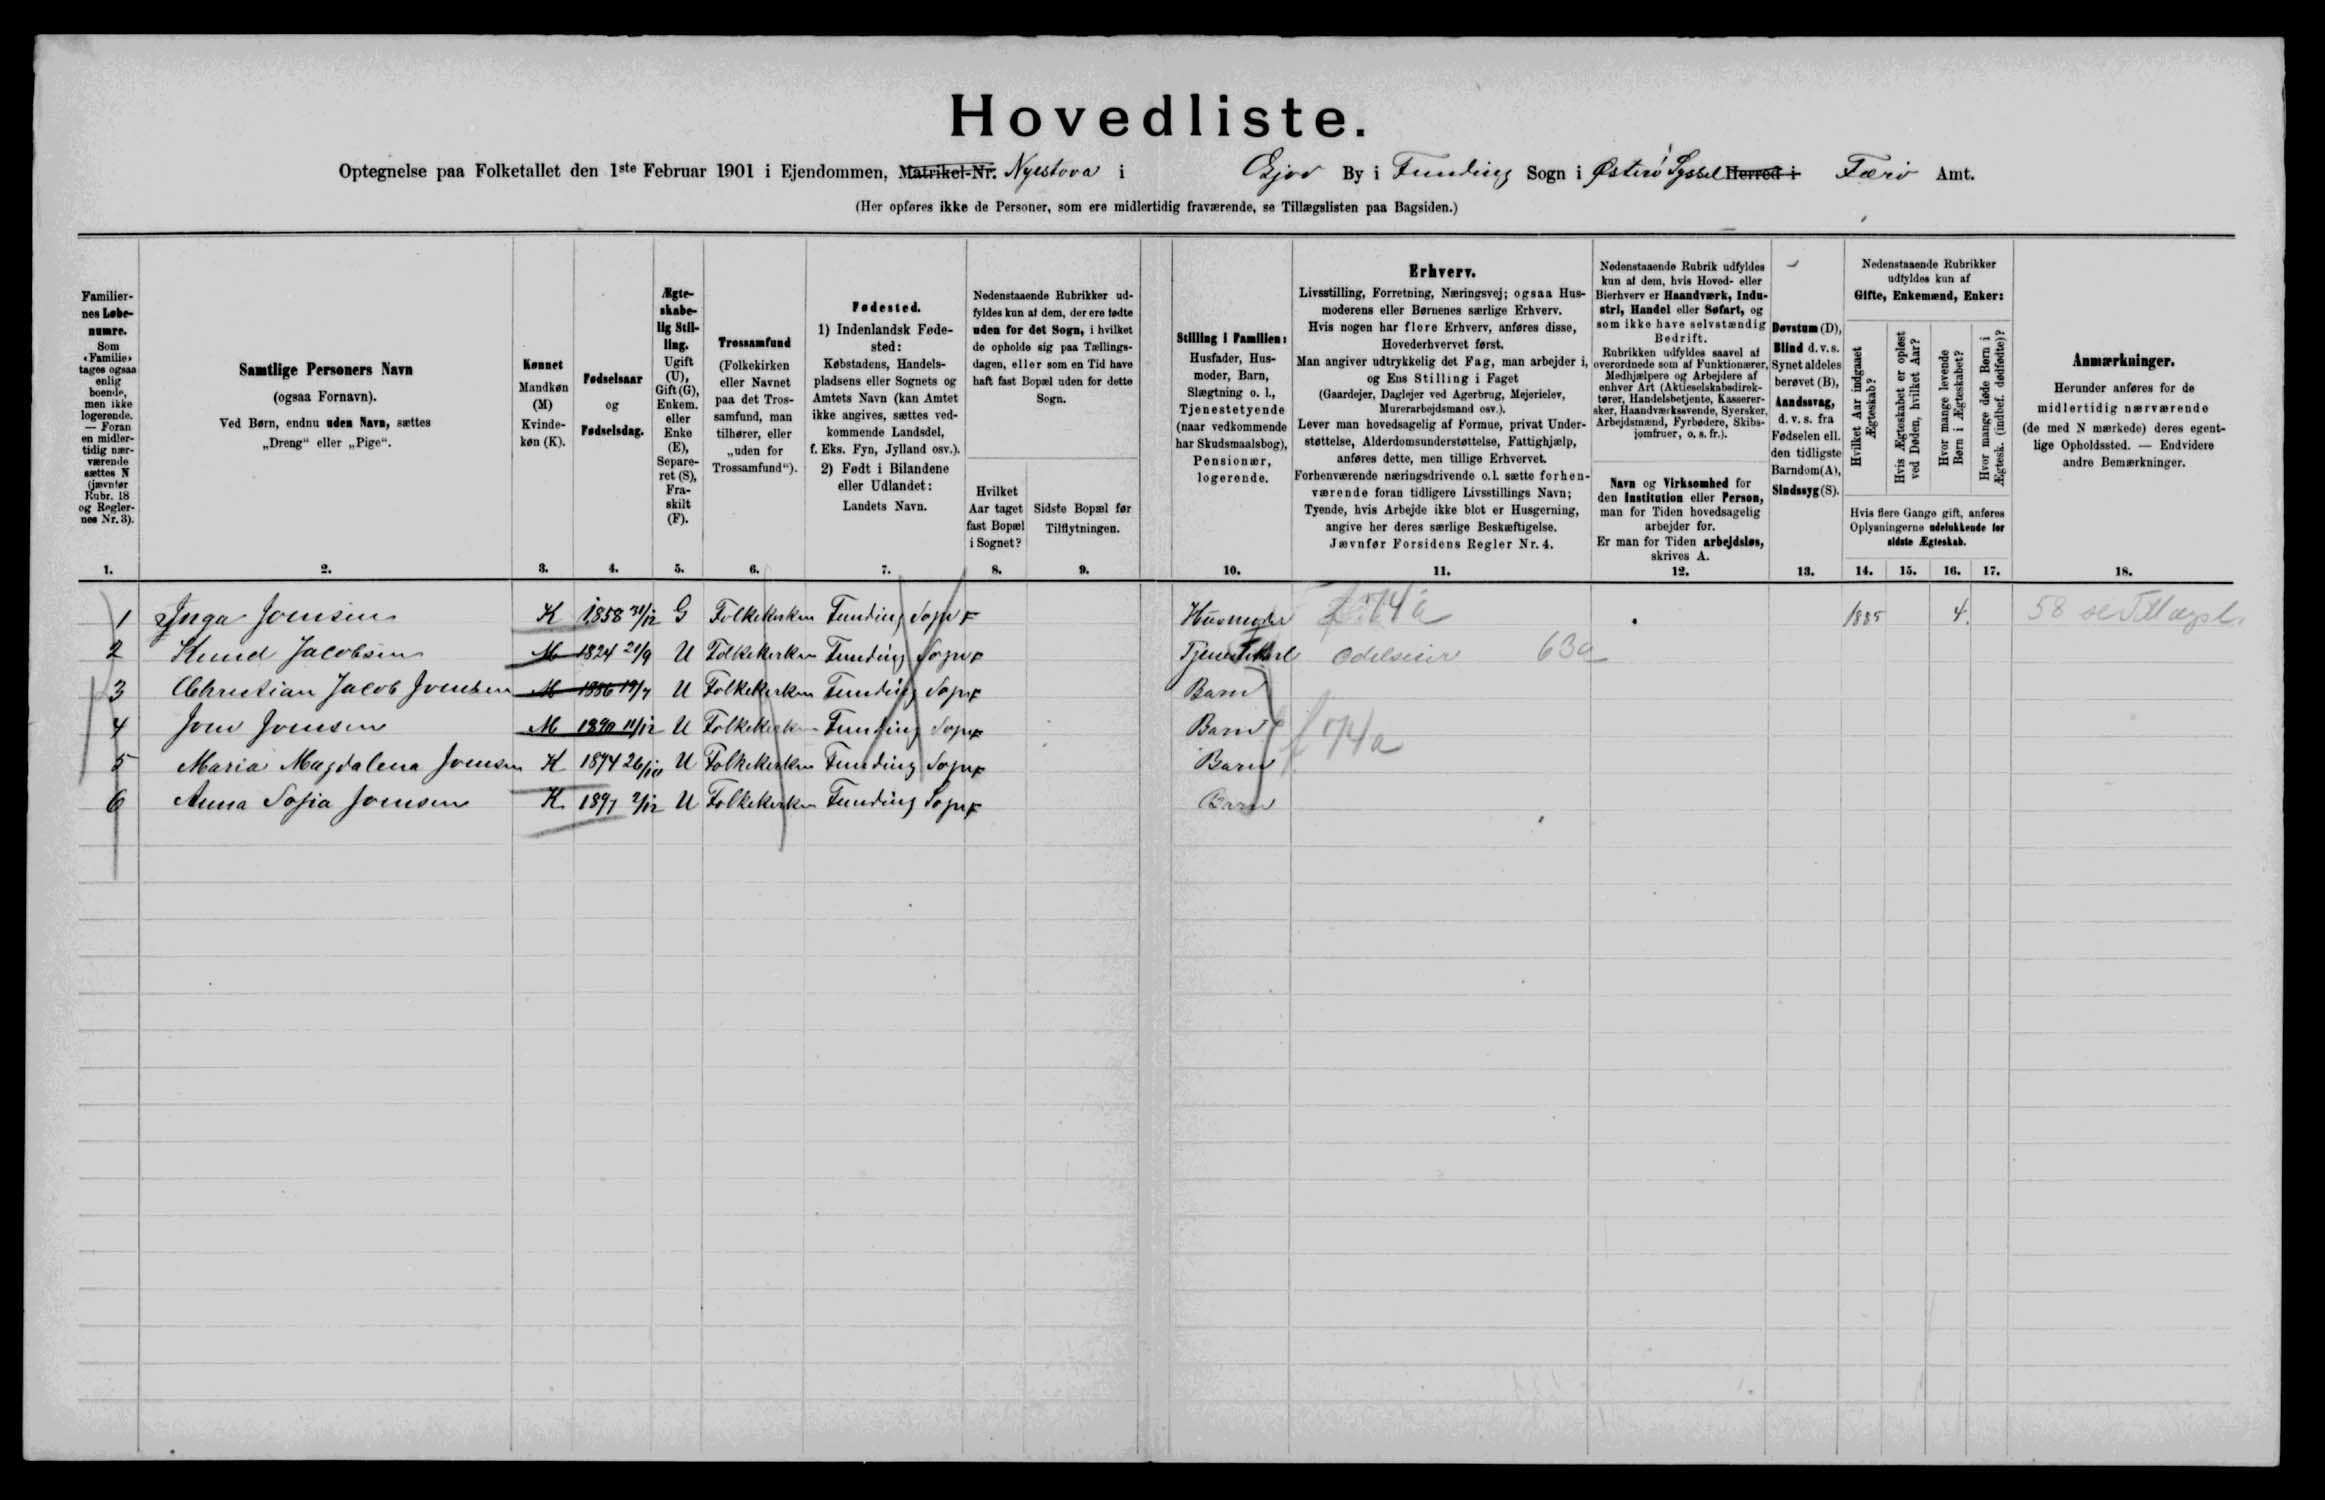 Hovedliste.
Optegnelse paa Folketallet den 1ste Februar 1901 i Ejendommen, Matrikel-Nr. Nyestova i Ejov By i Funding Sogn i Østerø Syssel Herred i Færø Amt.
(Her opføres ikke de Personer, som ere midlertidig fraværende, se Tillægslisten paa Bagsiden.)
Familiernes Løbenumre.
Som «Familie» tages ogsaa enlig boende, men ikke logerende. — Foran en midlertidig nærværende sættes N (jævnfør Rubr. 18 og Reglernes Nr. 3).
Samtlige Personers Navn
(ogsaa Fornavn).
Ved Børn, endnu uden Navn, sættes
„Dreng“ eller „Pige“.
Kønnet
Mandkøn
(M)
Kvindekøn (K).
Fødselsaar
og
Fødselsdag.
Ægteskabelig Stilling.
Ugift (U), Gift (G), Enkem. eller Enke (E), Separeret (S), Fraskilt (F).
Trossamfund
(Folkekirken
eller Navnet
paa det Trossamfund, man
tilhører, eller
„uden for
Trossamfund“).
Fødested.
1) Indenlandsk Fødested:
Købstadens, Handelspladsens eller Sognets og
Amtets Navn (kan Amtet
ikke angives, sættes vedkommende Landsdel,
f. Eks. Fyn, Jylland osv.).
2) Født i Bilandene
eller Udlandet:
Landets Navn.
Nedenstaaende Rubrikker udfyldes kun af dem, der ere fødte
uden for det Sogn, i hvilket
de opholde sig paa Tællingsdagen, eller som en Tid have
haft fast Bopæl uden for dette
Sogn.
Hvilket
Aar taget
fast Bopæl
i Sognet?
Sidste Bopæl før
Tilflytningen.
Stilling i Familien:
Husfader, Husmoder, Barn,
Slægtning o. l.,
Tjenestetyende
(naar vedkommende
har Skudsmaalsbog),
Pensionær,
logerende.
Erhverv.
Livsstilling, Forretning, Næringsvej; ogsaa Husmoderens eller Børnenes særlige Erhverv.
Hvis nogen har flere Erhverv, anføres disse,
Hovederhvervet først.
Man angiver udtrykkelig det Fag, man arbejder i,
og Ens Stilling i Faget
(Gaardejer, Daglejer ved Agerbrug, Mejerielev,
Murerarbejdsmand osv.).
Lever man hovedsagelig af Formue, privat Understøttelse, Alderdomsunderstøttelse, Fattighjælp,
anføres dette, men tillige Erhvervet.
Forhenværende næringsdrivende o. l. sætte forhenværende foran tidligere Livsstillings Navn;
Tyende, hvis Arbejde ikke blot er Husgerning,
angive her deres særlige Beskæftigelse.
Jævnfør Forsidens Regler Nr. 4.
Nedenstaaende Rubrik udfyldes
kun af dem, hvis Hoved- eller
Bierhverv er Haandværk, Industri, Handel eller Søfart, og
som ikke have selvstændig
Bedrift.
Rubrikken udfyldes saavel af
overordnede som af Funktionærer,
Medhjælpere og Arbejdere af
enhver Art (Aktieselskabsdirektører, Handelsbetjente, Kasserersker, Haandværkssvende, Syersker,
Arbejdsmænd, Fyrbødere, Skibsjomfruer, o. s. fr.).
Navn og Virksomhed for
den Institution eller Person,
man for Tiden hovedsagelig
arbejder for.
Er man for Tiden arbejdsløs,
skrives A.
Døvstum (D),
Blind d. v. s.
Synet aldeles
berøvet (B),
Aandssvag,
d. v. s. fra
Fødselen ell.
den tidligste
Barndom (A),
Sindssyg (S).
Nedenstaaende Rubrikker
udfyldes kun af
Gifte, Enkemænd, Enker:
Hvilket Aar indgaaet Ægteskab?
Hvis Ægteskabet er opløst ved Døden, hvilket Aar?
Hvor mange levende Børn i Ægteskabet?
Hvor mange døde Børn i Ægtesk. (indbef. dødfødte)?
Hvis flere Gange gift, anføres
Oplysningerne udelukkende for
sidste Ægteskab.
Anmærkninger.
Herunder anføres for de
midlertidig nærværende
(de med N mærkede) deres egentlige Opholdssted. — Endvidere
andre Bemærkninger.
1. 2. 3. 4. 5. 6. 7. 8. 9. 10. 11. 12. 13. 14. 15. 16. 17. 18.
1 Inga Joensen K 1858 31/12 G Folkekirken Funding Sogn F Husmoder 74a 1885 4. 58 se Tillægsl.
2 Knud Jacobsen M 1824 21/9 U Folkekirken Funding Sogn F Tjenestekarl Odelseier 63a
3 Christian Jacob Joensen M 1886 19/7 U Folkekirken Funding Sogn F Barn
4 Joen Joensen M 1890 11/12 U Folkekirken Funding Sogn F Barn f 74a
5 Maria Magdalena Joensen K 1894 26/10 U Folkekirken Funding Sogn F Barn
6 Anna Sofia Joensen K 1897 2/12 U Folkekirken Funding Sogn F Barn